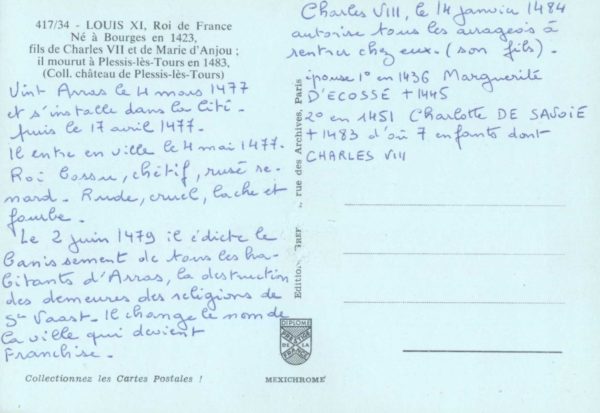 417/34 - LOUIS XI, Roi de France
Né à Bourges en 1423,
fils de Charles VII et de Marie d'Anjou ;
il mourut à Plessis-lès-Tours en 1483,
(Coll. château de Plessis-lès-Tours)
Vint Arras le 4 mars 1477
et s'installe dans la Cité.
puis le 17 avril 1477.
Il entre en ville le 4 mai 1477.
Roi bossu, chétif, rusé re-
nard. Rude, cruel, lache et
fourbe.
Le 2 juin 1479 il édicte le
banissement de tous les ha-
bitants d'Arras, la destruction
des demeures des religions de
St Vaast. Il change le nom de
la ville qui devient
Franchise.
Collectionnez les Cartes Postales !
Editions GREF , rue des Archives, Paris
DIPLOME
PRESTIGE
DE LA
FRANCE
MEXICHROME
Charles VIII, le 14 janvier 1484
autorise tous les arrageois à
rentrer chez eux. (son fils).
épouse 1° en 1436 Marguerite
D'ECOSSE +1445
2° en 1451 Charlotte DE SAVOIE
+1483 d'où 7 enfants dont
CHARLES VIII